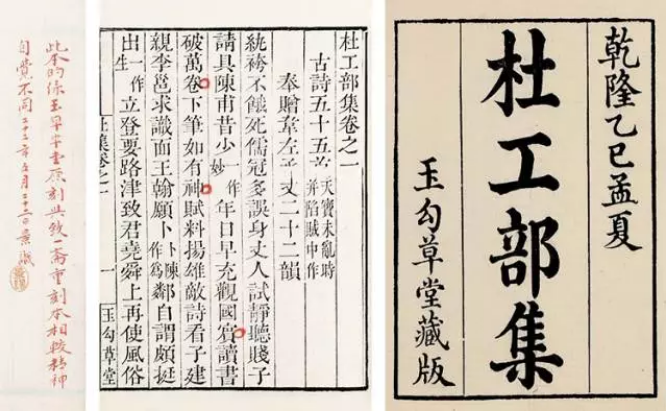 乾隆乙巳孟夏
杜工部集
玉勾草堂藏版
杜工部集卷之一
古詩五十五首 天寶未亂時
并陷賊中作
奉贈韋左丞丈二十二韻
紈袴不餓死儒冠多誤身丈人試靜聽賤子
請具陳甫昔少一作妙年日早充觀國賓讀書
破萬卷下筆如有神賦料揚雄敵詩看子建
親李邕求識面王翰願卜卜陳作為鄰自謂頗挺
出一作生立登要路津致君堯舜上再使風俗
杜集卷之一 一 玉勾草堂
此本的係玉草堂原刻與致一齋重刻本相較精神
自覺不同二十二年五月二十二日景